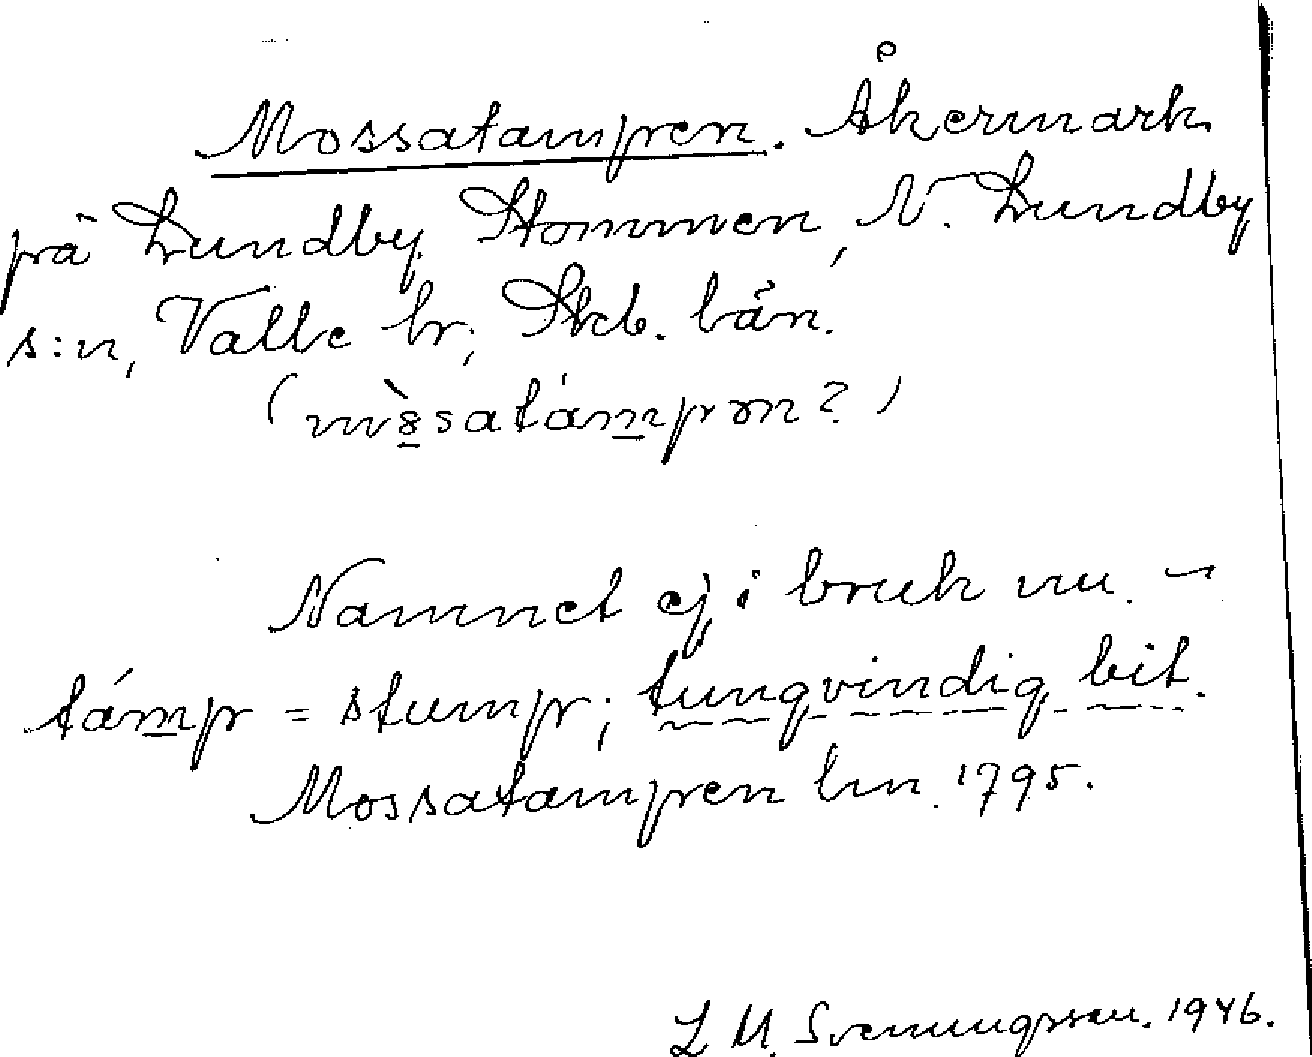 Mossatampen. Åkermark
på Lundby Stommen, N. Lundby
s:n, Valle hr; Skb. län.
(mòsatámpən?)
Namnet ej i bruk nu. –
támp = stump; tungvindig bit.
Mossatampen lm. 1795.
L M. Svenungsson. 1946.